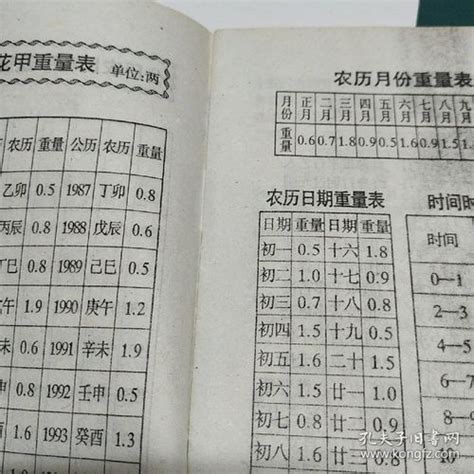 花甲重量表 单位:两
农历 重量 公历 农历 重量
乙卯 0.5 1987 丁卯 0.8
丙辰 0.8 1988 戊辰 0.6
丁巳 0.8 1989 己巳 0.5
午 1.9 1990 庚午 1.2
未 0.6 1991 辛未 1.9
申 0.8 1992 壬申 0.5
1.6 1993 癸酉 1.3
农历月份重量表
月份 正月 二月 三月 四月 五月 六月 七月 八月 九月
重量 0.6 0.7 1.8 0.9 0.5 1.6 0.9 1.5 1.
农历日期重量表
日期 重量 日期 重量
初一 0.5 十六 1.8
初二 1.0 十七 0.9
初三 0.7 十八 0.8
初四 1.5 十九 0.5
初五 1.6 二十 1.5
初六 1.5 廿一 1.0
初七 0.8 廿二 0.9
初八 1.6
时间时
时间
0—1
2—3
4—5
6—7
8—
孔夫子旧书网
www.kongfz.com